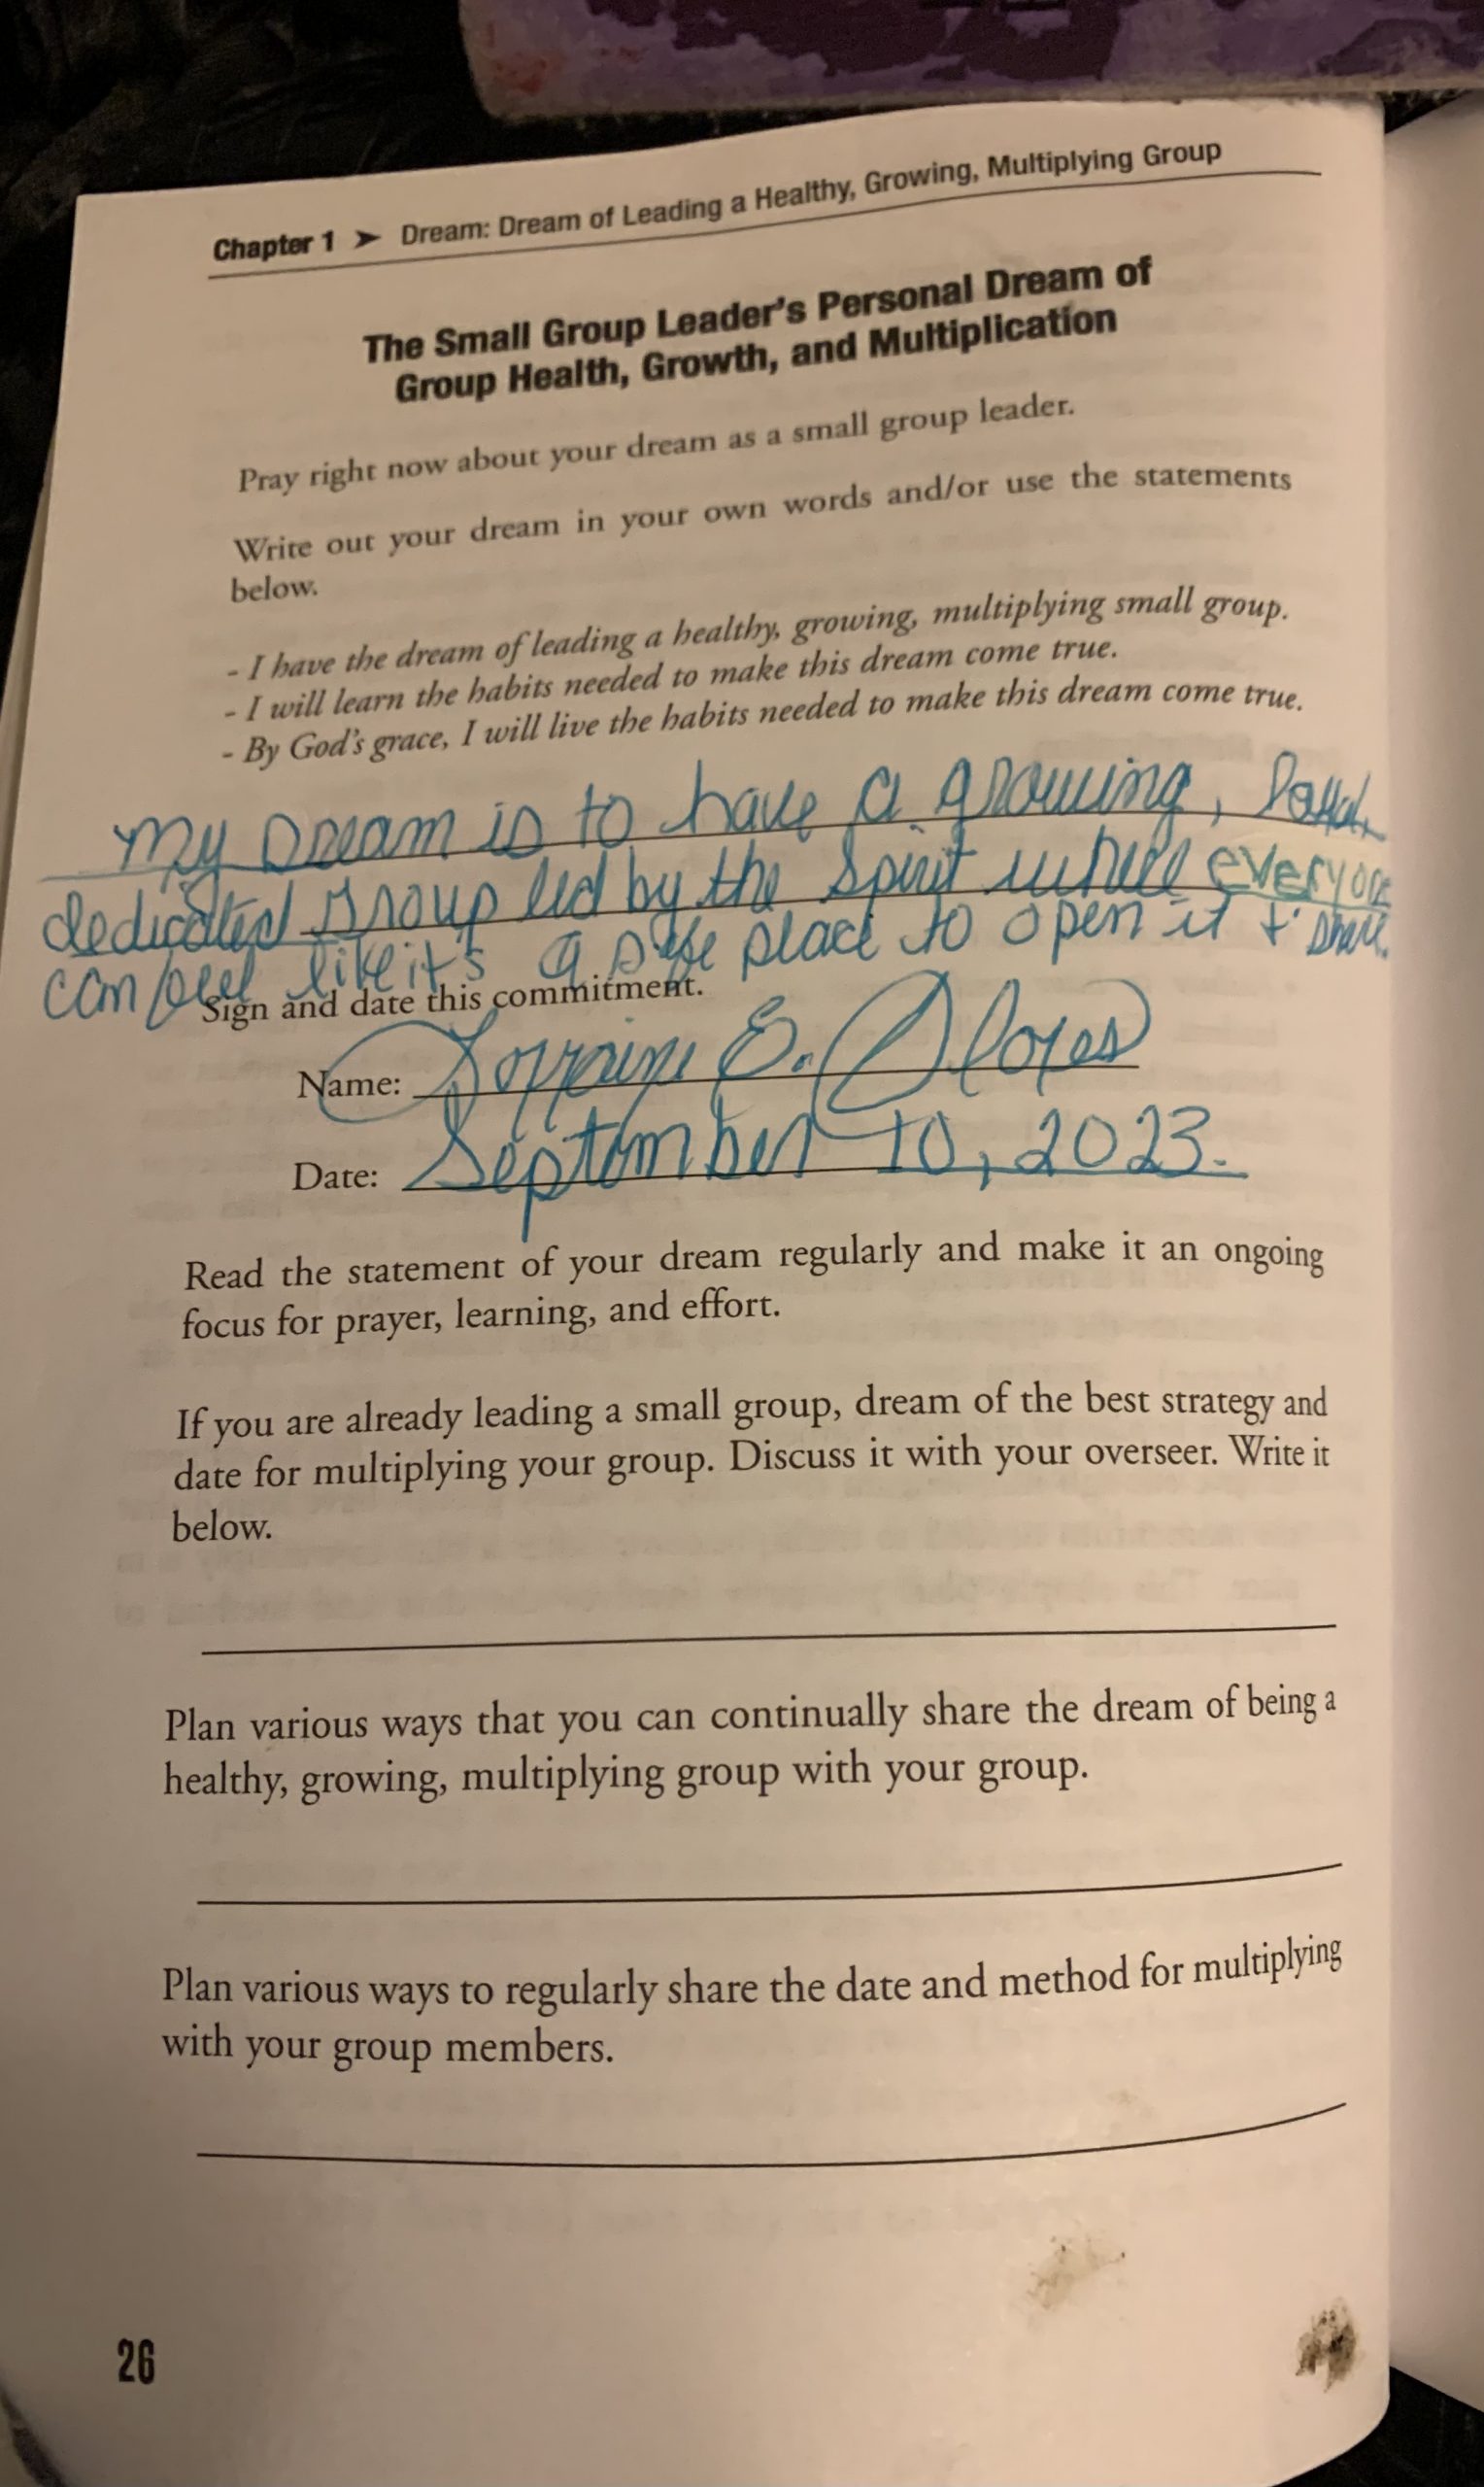 Chapter 1 ➤ Dream: Dream of Leading a Healthy, Growing, Multiplying Group
The Small Group Leader's Personal Dream of
Group Health, Growth, and Multiplication
Pray right now about your dream as a small group leader.
Write out your dream in your own words and/or use the statements
below.
- I have the dream of leading a healthy, growing, multiplying small group.
- I will learn the habits needed to make this dream come true.
- By God's grace, I will live the habits needed to make this dream come true.
My Dream is to have a growing,
dedicated group led by the Spirit where everyone
can feel like it's a safe place to open it + share.
Sign and date this commitment.
Name: Lorraine E.
Date: September 10, 2023.
Read the statement of your dream regularly and make it an ongoing
focus for prayer, learning, and effort.
If you are already leading a small group, dream of the best strategy and
date for multiplying your group. Discuss it with your overseer. Write it
below.
Plan various ways that you can continually share the dream of being a
healthy, growing, multiplying group with your group.
Plan various ways to regularly share the date and method for multiplying
with your group members.
26